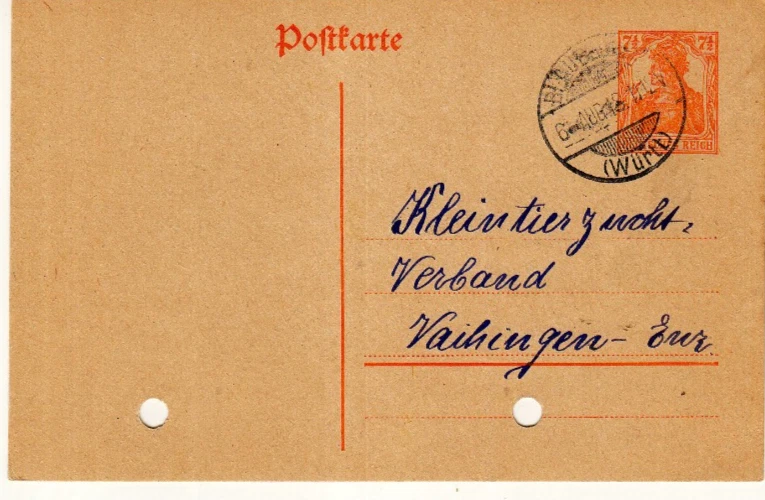 Postkarte
7½ 7½
REICH
(Württ)
Kleintierzucht-
Verband
Vaihingen - Enz.